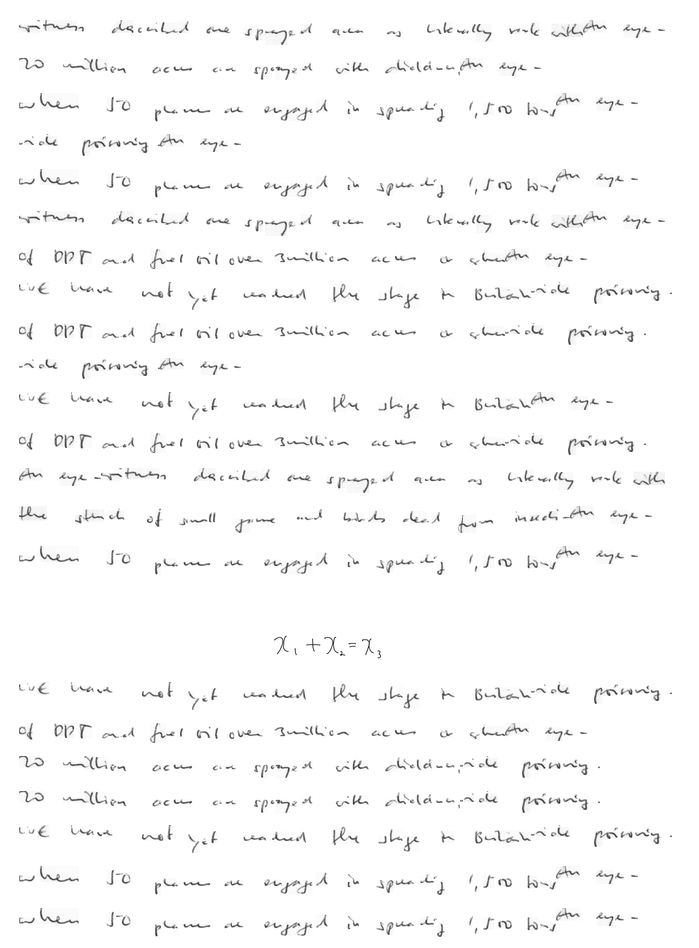 witness described one sprayed area as literally reek with An eye-
20 million acres are sprayed with dieldrin, An eye-
when 50 planes are engaged in spreading 1,500 tons An eye-
-icide poisoning An eye-
when 50 planes are engaged in spreading 1,500 tons An eye-
witness described one sprayed area as literally reek with An eye-
of DDT and fuel oil over 3 million acres or when An eye-
WE have not yet reached the stage in Britain -icide poisoning.
of DDT and fuel oil over 3 million acres or when -icide poisoning.
-icide poisoning An eye-
WE have not yet reached the stage in Britain An eye-
of DDT and fuel oil over 3 million acres or when -icide poisoning.
An eye-witness described one sprayed area as literally reek with
the stench of small game and birds dead from insecti- An eye-
when 50 planes are engaged in spreading 1,500 tons An eye-
x₁ + x₂ = x₃
WE have not yet reached the stage in Britain -icide poisoning.
of DDT and fuel oil over 3 million acres or when An eye-
20 million acres are sprayed with dieldrin, -icide poisoning.
20 million acres are sprayed with dieldrin, -icide poisoning.
WE have not yet reached the stage in Britain -icide poisoning.
when 50 planes are engaged in spreading 1,500 tons An eye-
when 50 planes are engaged in spreading 1,500 tons An eye-